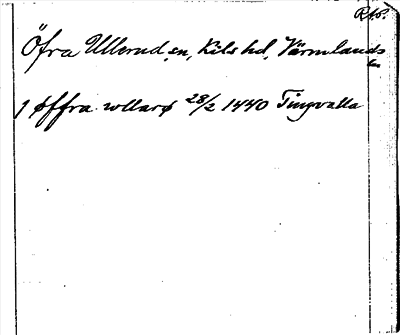 RAp.
Öfra Ullerud, sn, Kils hd, Värmlands
län
j øffra wllarø 28/2 1440 Tingvalla